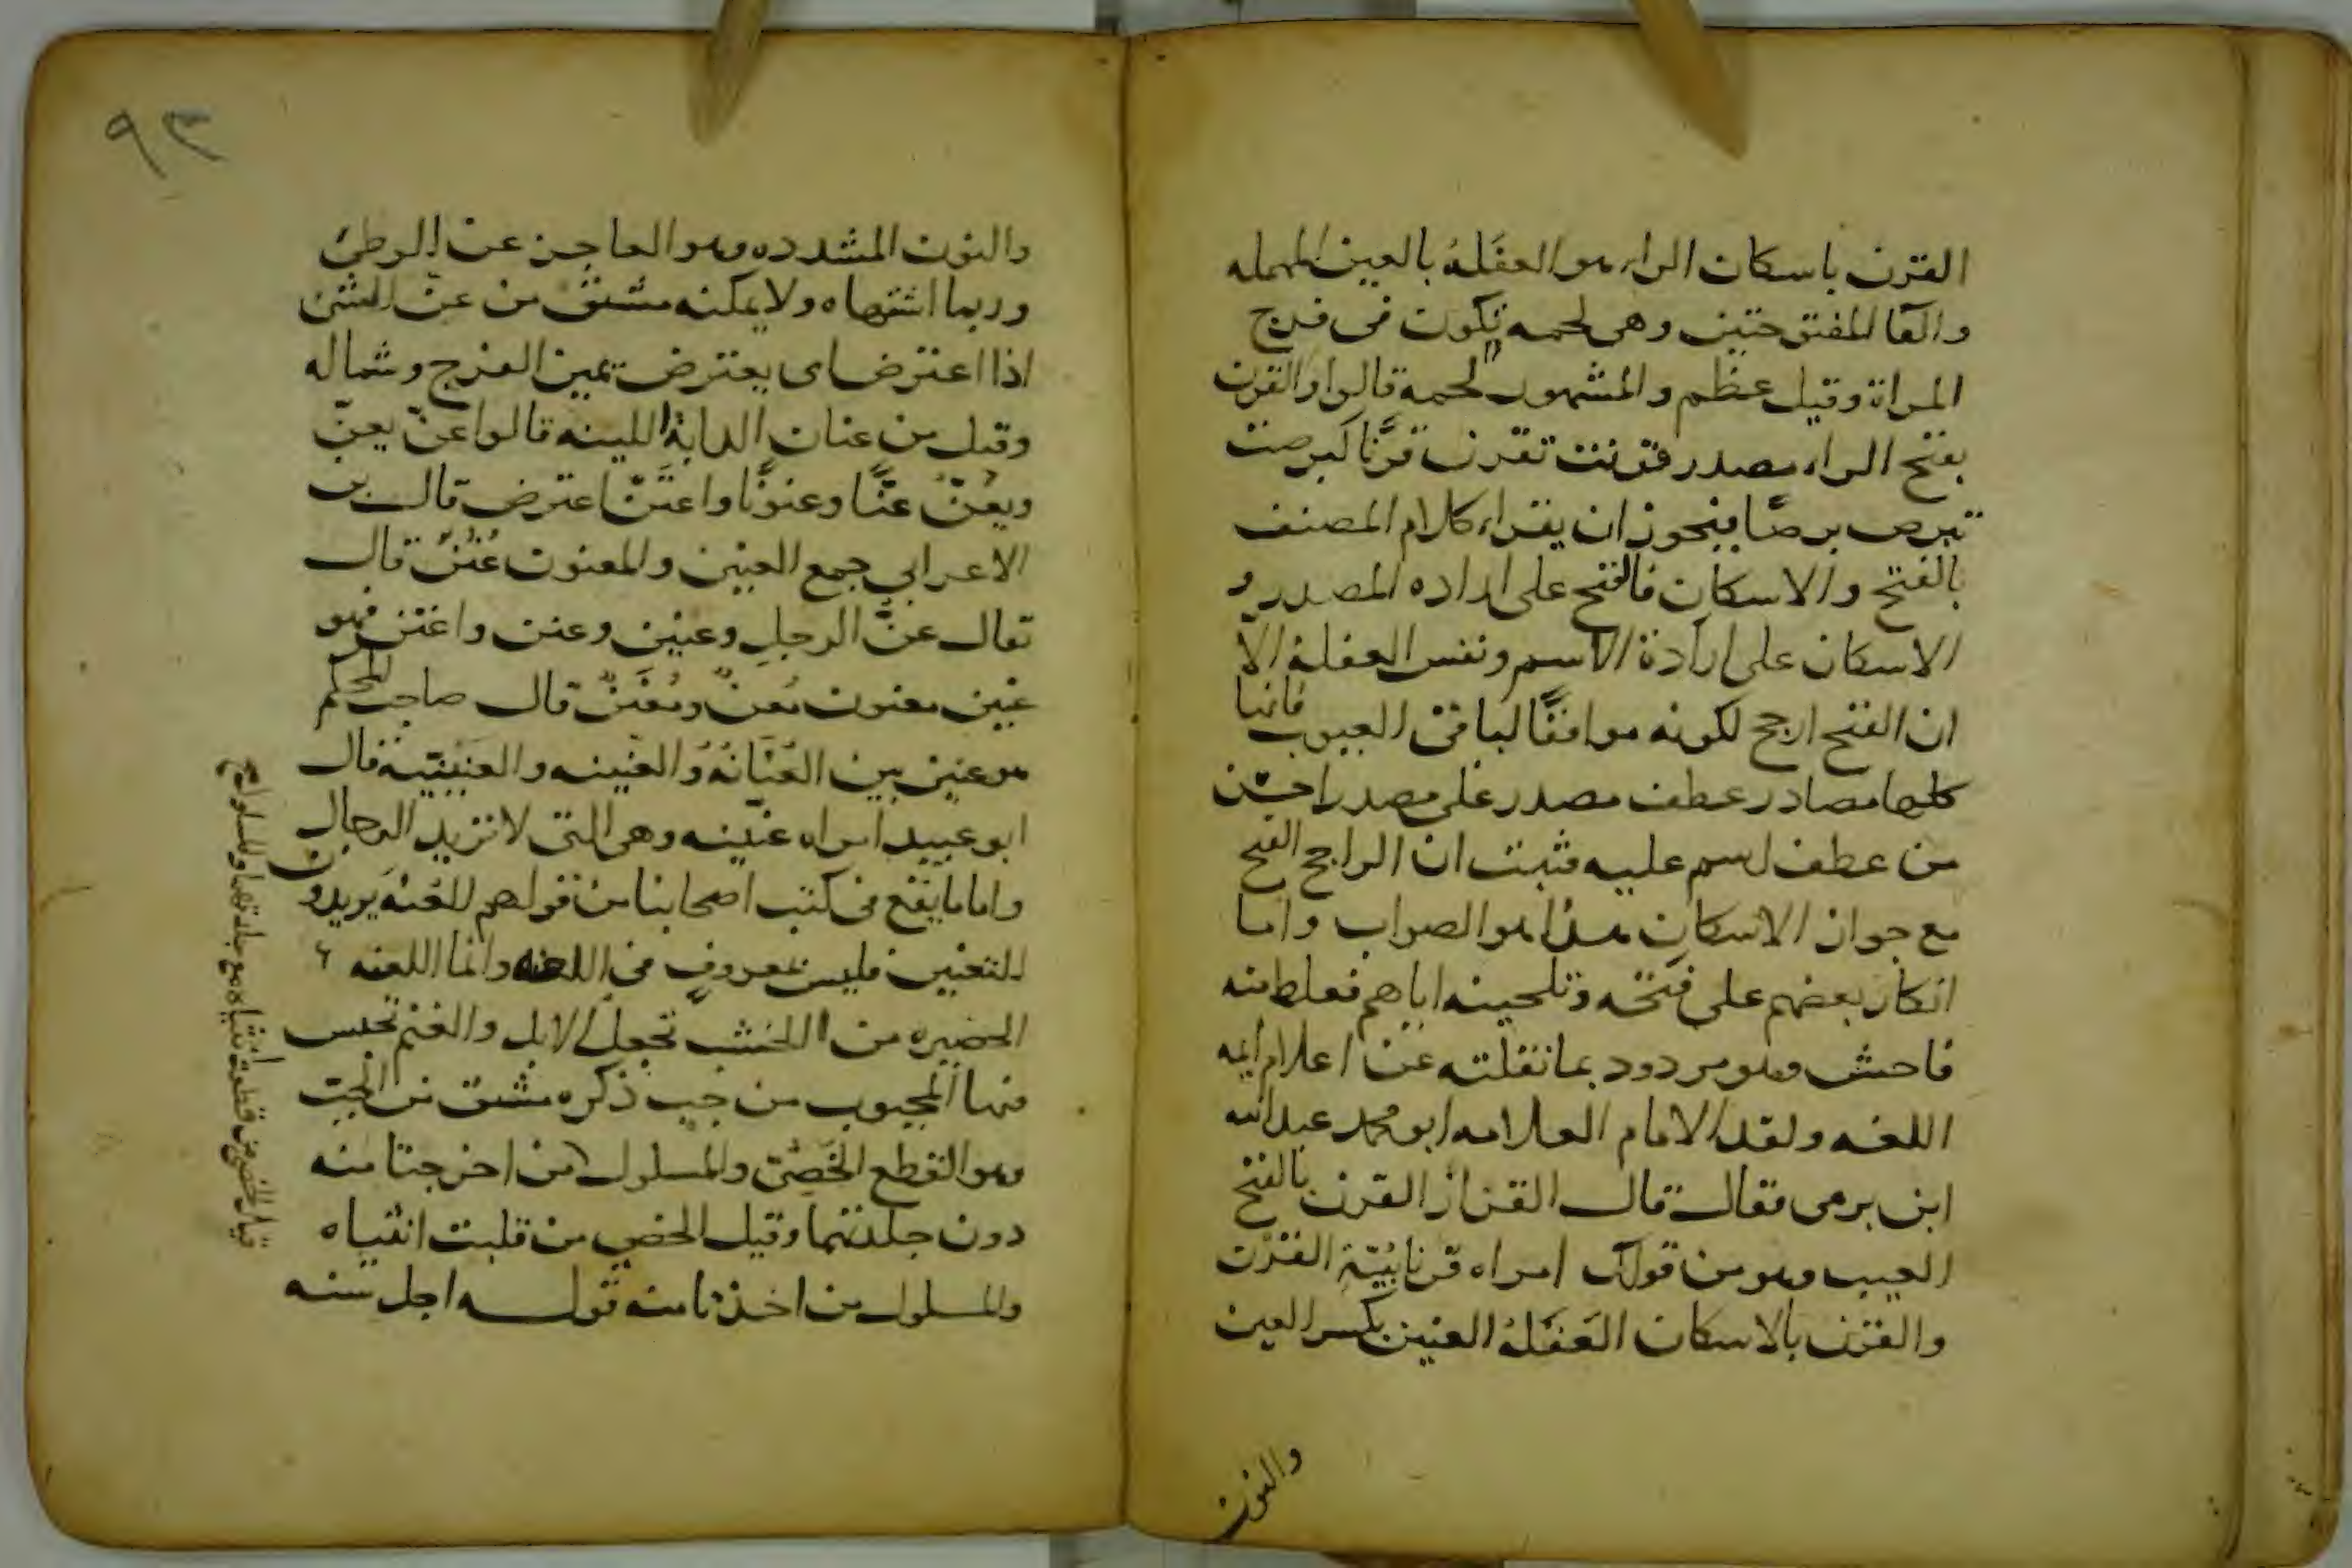 القرن باسكان الراء هو العفَلة بالعين المهمله
والفا المفتوحتين وهى لحمه تكون فى فرج
المراة وقيل عظم والمشهور لحمة قالوا والقرن
بفتح الراء مصدر قرنت تقرن قرنًا كبرصت
تبرص برصًا فيجوز ان يقراء كلام المصنف
بالفتح والاسكان فالفتح على اراده المصدر و
الاسكان على ارادة الاسم ونفس العفلة الا
ان الفتح ارجح لكونه موافقًا لباقى العيوب فانها
كلها مصادر عطف مصدر على مصدر احسن
من عطف اسم عليه فثبت ان الراجح الفتح
مع جواز الاسكان هذا هو الصواب واما
انكار بعضهم على فتحه وتلحينه اياهم فغلط منه
فاحش وهو مردود بما نقلته عن اعلام ايمه
اللغه ولقد الامام العلامه ابو محمد عبدالله
ابن برمى فقال قال القزاز القرن بالفتح
العيب وهو من قولك امراه قرنا بيّنة القرن
والقرن بالاسكان العَفَلة العنين بكسر العين
والنون
٩٣
والنون المشدده وهو العاجز عن الوطئ
وربما اشتهاه ولا يمكنه مشتق من عنّ الشئ
اذا اعترض اى يعترض يمين الفرج وشماله
وقيل من عنان الدابة اللينه قالوا عنّ يعنّ
ويعُنّ عنًّا وعنونًا واعتَنّ اعترض قال بن
الاعرابي جمع العنين والمعنون عُنُنٌ قال
تقال عنَّ الرجل وعنين وعنن واعتن فهو
عنين معنون مُعنٌ ومُعَنَّنٌ قال صاحب المحكم
هو عنين بين العَنّانَة والعنينه والعنينيّة قال
ابو عبيد امراه عنّينه وهى التى لا تريد الرجال
واما ما يقع فى كتب اصحابنا من قولهم العنه يريدون
التعنين فليس بمعروف فى اللغه وانما اللعنه
الحضيره من اللخشب تجعل الابل والغنم تحبس
فيها المجبوب من جب ذكره مشتق من الجبّ
وهو القطع الخَصىّ والمسلول من اخرجتا منه
دون جلدتهما وقيل الخصي من قلبت انثياه
والمسلول من اخذتا منه قولـــه اجل سنه
قيل الخصي من قطعت أنثياه مع جلدتهما والمسلول